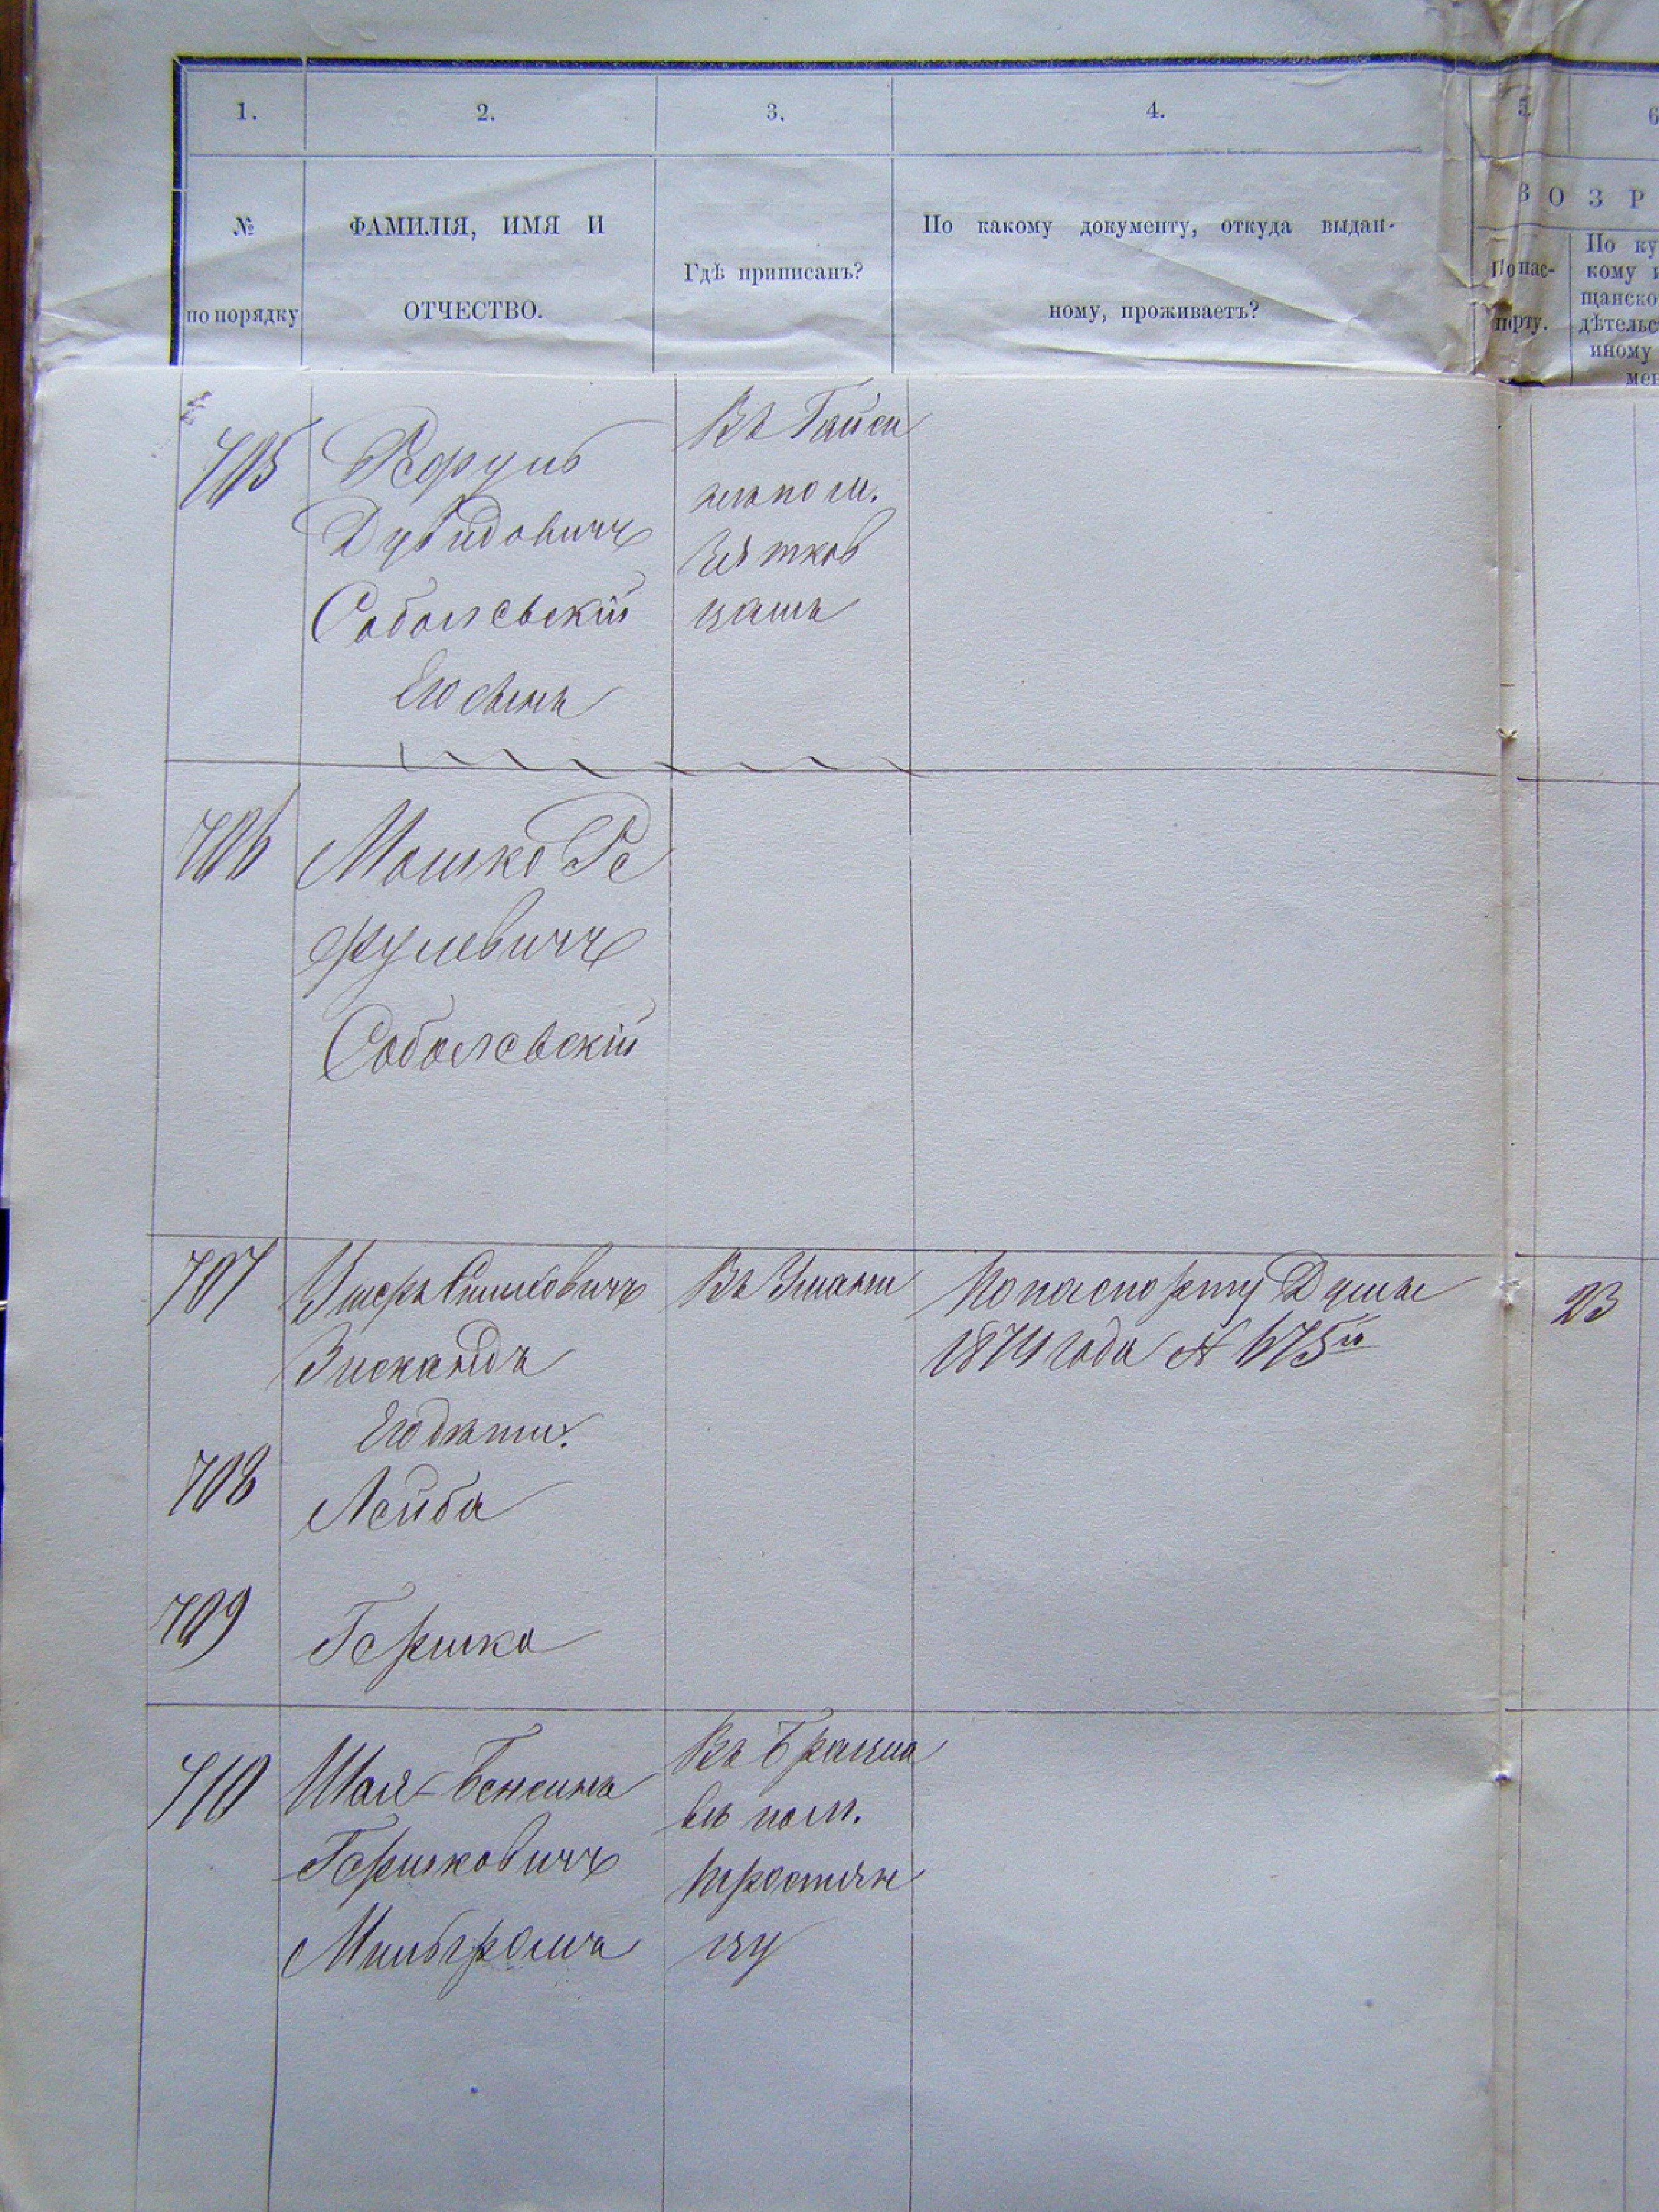 1.
2.
3.
4.
5.
6
№
по порядку
ФАМИЛІЯ, ИМЯ И
ОТЧЕСТВО.
Гдѣ приписанъ?
По какому документу, откуда выдан-
ному, проживаетъ?
ВОЗР
По пас-
порту.
По ку
кому и
щанско
дѣтельс
иному
мен
705
Рефуль
Дувидовичъ
Соболевскій
Его сынъ
Въ Гайси
нѣ по м.
цахъ
706
Мошко Ре
фулевичъ
Соболевскій
707
Ушеръ Сим­ховичъ
Зискандъ
Его дѣти:
Въ Умани
По паспорту Думы
1874 года № 675й
23
708
Лейба
709
Гершко
710
Шая-Бенсинъ
Гершковичъ
Мильгромъ
Въ Брацла
вѣ по м.
цу